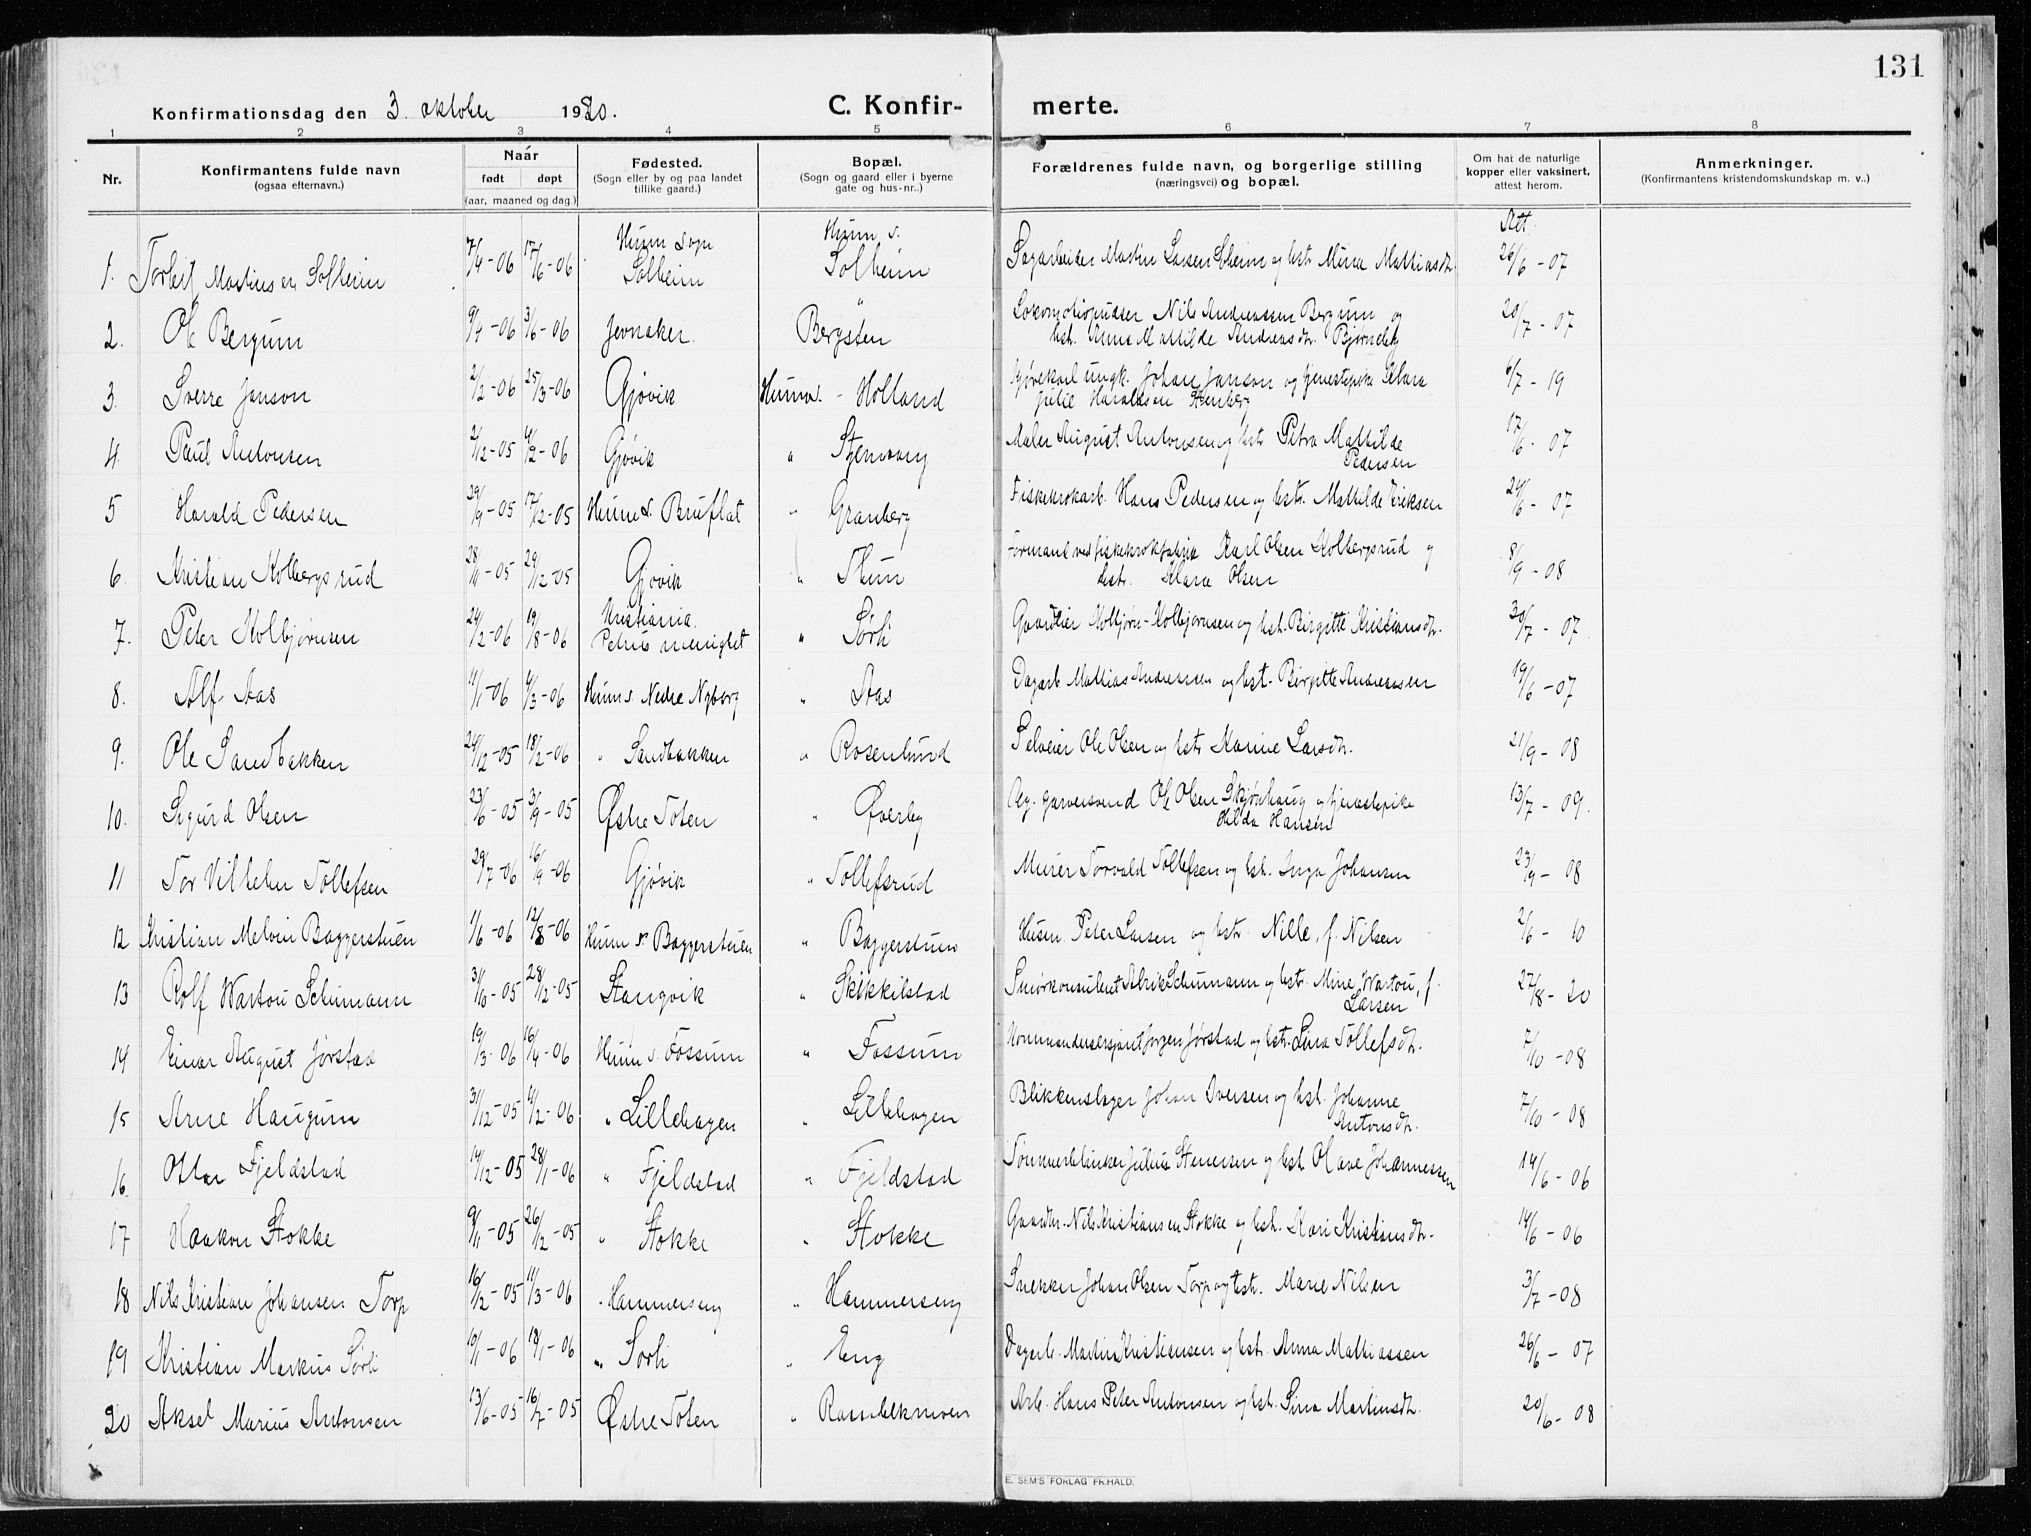 131
Konfirmationsdag den 3. oktober 1920.
C. Konfir- merte.
1 2 3 4 5 6 7 8
Nr.
Konfirmantens fulde navn
(ogsaa efternavn.)
Naar
født døpt
(aar, maaned og dag.)
Fødested.
(Sogn eller by og paa landet
tillike gaard.)
Bopæl.
(Sogn og gaard eller i byerne
gate og hus-nr..)
Forældrenes fulde navn, og borgerlige stilling
(næringsvei) og bopæl.
Om hat de naturlige
kopper eller vaksinert,
attest herom.
Anmerkninger.
(Konfirmantens kristendomskundskap m. v..)
Hunn sogn Hunn s. Att.
1. Martinsen Solheim 7/4-06 17/6-06 Solheim Solheim Sagarbeider Martin Larsen Solheim og hst. Mina Mathiasdtr. 26/6-07
2. Ole Bergum 9/4-06 3/6-06 Jevnaker Bergsten Lokomotivpudser Nils Andreassen Bergum og 20/7-07
hst. Anna Matilde Andreasdtr. Bjørneby
3. Sverre Janson 2/2-06 25/3-06 Gjøvik Hunns. - Holland ungk. Johan Janson og tjenestepike Klara 6/7-19
Julie Haraldsen Stenberg
4. Paul Antonsen 2/12-05 4/2-06 Gjøvik " Maler August Antonsen og hst. Petra Mathilde 17/6-07
Pedersen
5 Harald Pedersen 29/9-05 17/12-05 Hunn s. Bruflat " Granberg Fiskekrokarb. Hans Pedersen og hstr. Mathilde Eriksen 24/6-07
6. Kristian Kolbergsrud 28/10-05 29/12-05 Gjøvik " Thun Formand ved fiskekrokfabrik Karl Olsen Kolbergsrud og 8/9-08
hstr. Klara Olsen
7. Peter Kolbjørnsen 24/2-06 19/8-06 Kristiania " Sørli Gaardeier Kolbjørn Kolbjørnsen og hst. Birgitte Kristiansdtr. 30/7-07
Petrus menighet
8. Alf Aas 11/1-06 4/3-06 Hunn s. Nedre Nyborg " Aas Dagarb. Mathias Andreassen og hst. Birgitte Andreassen 19/6-07
9. Ole Sandbakken 24/12-05 18/2-06 " Sandbakken " Rosenlund Selveier Ole Olsen og hstr Karine Larsdtr. 21/9-08
10. Sigurd Olsen 23/6-05 3/9-05 Østre Toten " Øverby Ug. garversvend Ole Olsen Skjønhaug og tjenestepike 13/7-09.
Hilda Hansen
11 Tor Vilhelm Tollefsen 29/7-06 16/9-06 Gjøvik " Tollefsrud Murer Torvald Tollefsen og hst. Inga Johansen 23/9-08
12 Kristian Melvin Baggerstuen 1/6-06 12/8-06 Hunn s. Baggerstuen " Baggerstuen Husm. Peter Larsen og hstr. Nille, f. Nilsen 2/6-10
13 Rolf Wartou Schumann 3/10-05 28/12-05 Stangvik " Skikkilstad Smørkonsulent Alrik Schumann og hstr. Mine Wartou, f. 27/8-20
Larsen
14 Einar August Jørstad 19/3-06 16/4-06 Hunn s. Fossum " Fossum Kommandersersjant Jørgen Jørstad og hstr. Lina Tollefsdtr. 7/10-08
15 Arne Haugum 31/12-05 4/2-06 " Lillehagen " Lillehagen Blikkenslager Johan Iversen og hst. Johanne 7/10-08
Antonsdtr.
16. Ottar Fjeldstad 14/12-05 28/1-06 " Fjeldstad " Fjeldstad Tømmerblinker Julius Stenersen og hst. Olave Johannessen 14/6-06
17 Haakon Stokke 9/11-05 26/12-05 " Stokke " Stokke Gaardbr. Nils Kristiansen Stokke og hst. Kari Kristiansdtr. 14/6-06
18 Nils Kristian Johansen Torp 16/12-05 11/3-06 " Hammerseng " Hammerseng Snekker Johan Olsen Torp og hst. Marie Nilsen 3/7-08
19 Kristian Markus Sørli 10/1-06 18/1-06 " Sørli " Eng Dagarb. Martin Kristiansen og hst. Anna Mathiassen 26/6-07
20 Aksel Marius Antonsen 13/6-05 16/7-05 Østre Toten " Arb. Hans Peter Antonsen og hst. Lina Martinsdtr. 20/6-08
E. SEM'S FORLAG FR.HALD.